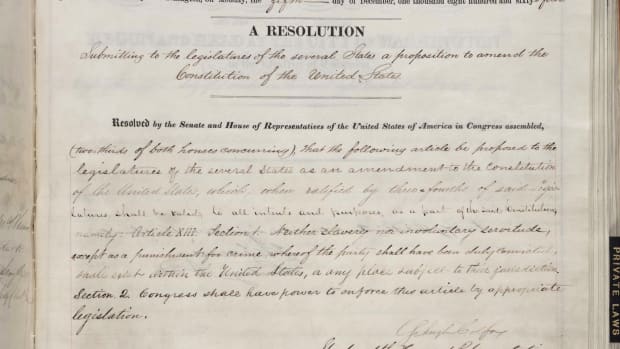 day of December, one thousand eight hundred and sixty-four
A RESOLUTION
Submitting to the legislatures of the several States a proposition to amend the
Constitution of the United States
Resolved by the Senate and House of Representatives of the United States of America in Congress assembled,
(two-thirds of both houses concurring), That the following article be proposed to the
legislatures of the several States as an amendment to the Constitution
of the United States, which, when ratified by three-fourths of said Legis-
latures, shall be valid, to all intents and purposes, as a part of the said Constitution,
namely: Article XIII. Section 1. Neither Slavery nor involuntary servitude,
except as a punishment for crime whereof the party shall have been duly convicted,
shall exist within the United States, or any place subject to their jurisdiction.
Section 2. Congress shall have power to enforce this article by appropriate
legislation.
Schuyler Colfax
PRIVATE LAWS